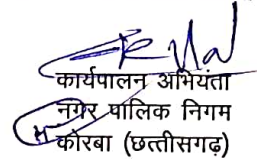 कार्यपालन अभियंता
नगर पालिक निगम
कोरबा (छत्तीसगढ़)